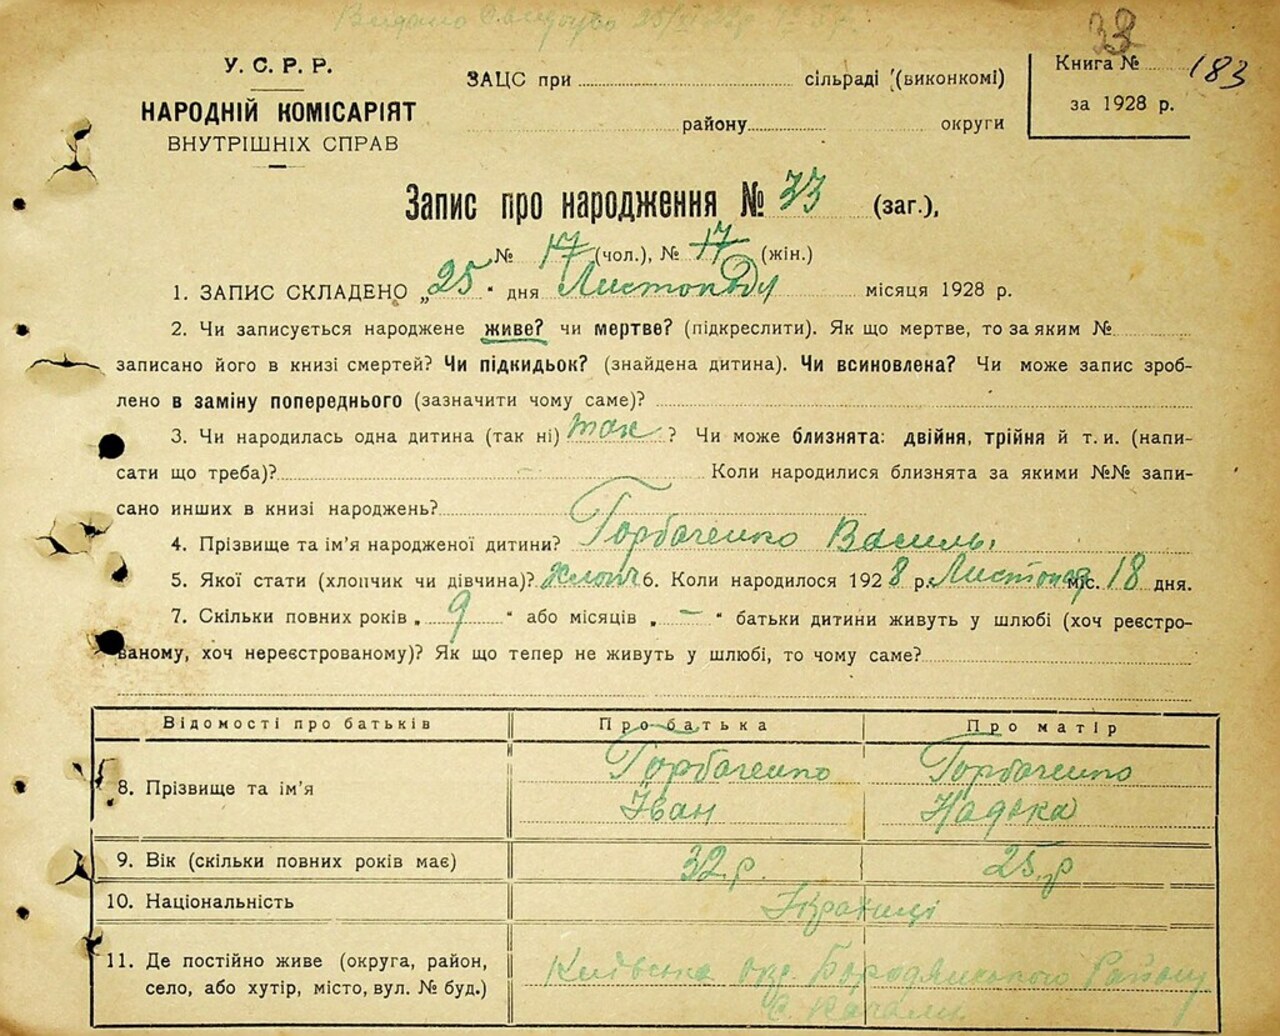 Видано Свидоцтво
33
У. С. Р. Р.
НАРОДНІЙ КОМІСАРІЯТ
ВНУТРІШНІХ СПРАВ
ЗАЦС при сільраді (виконкомі)
району округи
Книга № 183
за 1928 р.
Запис про народження № 33 (заг.),
№ 17 (чол.), № 17 (жін.)
1. ЗАПИС СКЛАДЕНО „25" дня Листопада місяця 1928 р.
2. Чи записується народжене живе? чи мертве? (підкреслити). Як що мертве, то за яким №
записано його в книзі смертей? Чи підкидьок? (знайдена дитина). Чи всиновлена? Чи може запис зроб-
лено в заміну попереднього (зазначити чому саме)?
3. Чи народилась одна дитина (так ні) так? Чи може близнята: двійня, трійня й т. и. (напи-
сати що треба)? Коли народилися близнята за якими №№ запи-
сано инших в книзі народжень?
4. Прізвище та ім'я народженої дитини? Горбаченко Василь
5. Якої стати (хлопчик чи дівчина)? хлопч 6. Коли народилося 1928 р. Листопад міс. 18 дня.
7. Скільки повних років „9" або місяців „–" батьки дитини живуть у шлюбі (хоч реєстро-
ваному, хоч нереєстрованому)? Як що тепер не живуть у шлюбі, то чому саме?
Відомості про батьків Про батька Про матір
8. Прізвище та ім'я Горбаченко Іван Горбаченко Надька
9. Вік (скільки повних років має) 32 р. 25 р
10. Національність Українці
11. Де постійно живе (округа, район, Київська окр. Бородянського Району
село, або хутір, місто, вул. № буд.) С. Качали